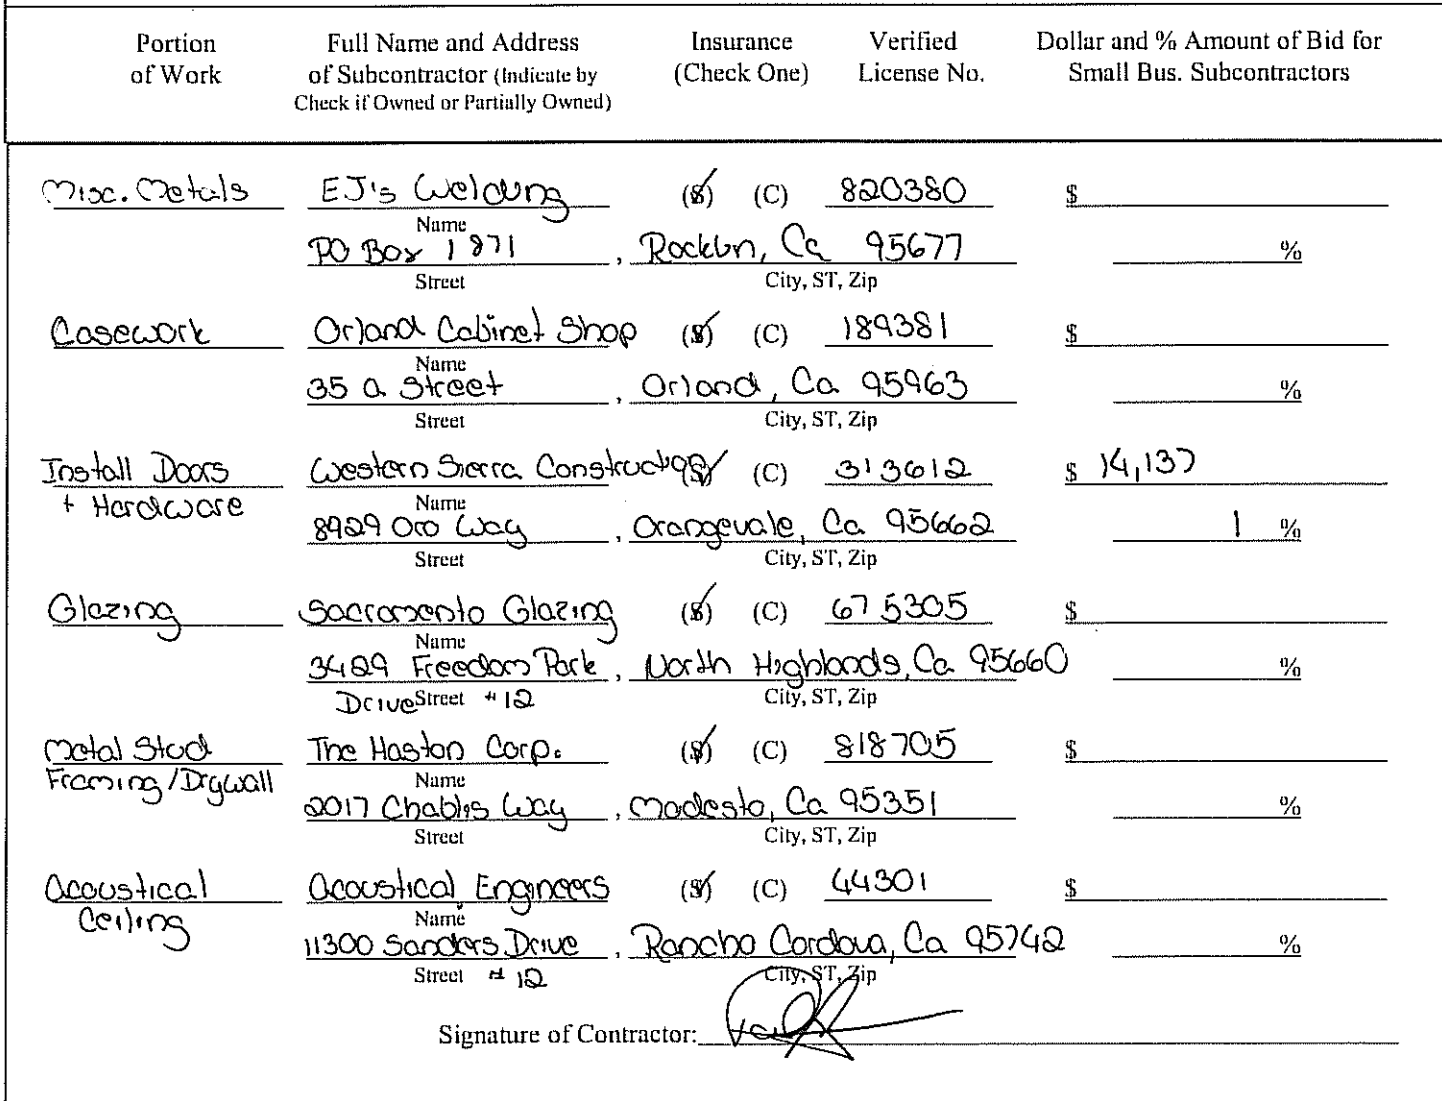 Portion of Work
Full Name and Address of Subcontractor (Indicate by Check if Owned or Partially Owned)
Insurance (Check One)
Verified License No.
Dollar and % Amount of Bid for Small Bus. Subcontractors
Misc. Metals EJ's Welding (S) (C) 820380 $
Name
PO Box 1871 , Rocklin, Ca 95677 %
Street City, ST, Zip
Casework Orland Cabinet Shop (S) (C) 189381 $
Name
35 a Street , Orland, Ca 95963 %
Street City, ST, Zip
Install Doors Western Sierra Construction (S) (C) 313612 $ 14,137
+ Hardware Name
8929 Oro Way , Orangevale, Ca 95662 1 %
Street City, ST, Zip
Glazing Sacramento Glazing (S) (C) 675305 $
Name
3429 Freedom Park , North Highlands, Ca 95660 %
Drive Street #12 City, ST, Zip
Metal Stud The Haston Corp. (S) (C) 818705 $
Framing/Drywall Name
2017 Chablis Way , Modesto, Ca 95351 %
Street City, ST, Zip
Acoustical Acoustical Engineers (S) (C) 44301 $
Ceiling Name
11300 Sanders Drive , Rancho Cordova, Ca 95742 %
Street #12 City, ST, Zip
Signature of Contractor: